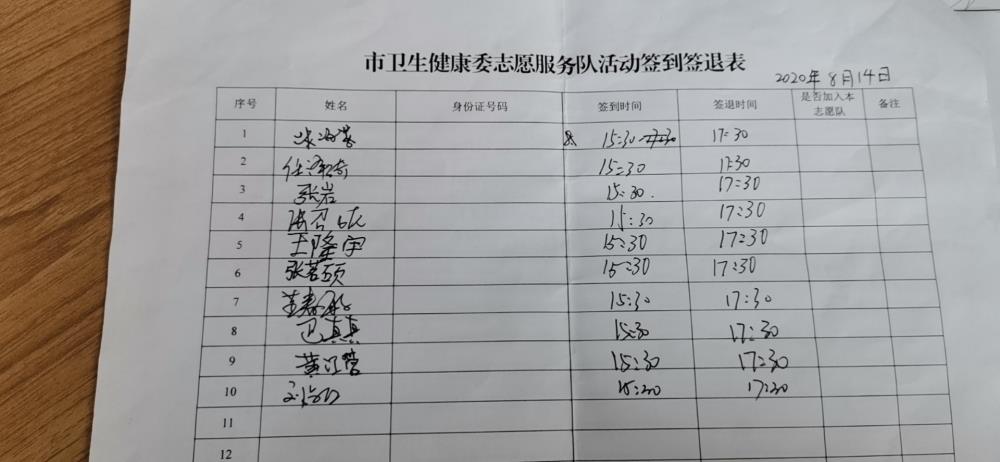 市卫生健康委志愿服务队活动签到签退表
2020年8月14日
序号 姓名 身份证号码 签到时间 签退时间 是否加入本志愿队 备注
1 15:30 17:30
2 15:30 17:30
3 张岩 15:30. 17:30
4 15:30 17:30
5 王隆宇 15:30 17:30
6 张茗硕 15:30 17:30
7 15:30 17:30
8 真真 15:30 17:30
9 黄江营 15:30 17:30
10 15:30 17:30
11
12